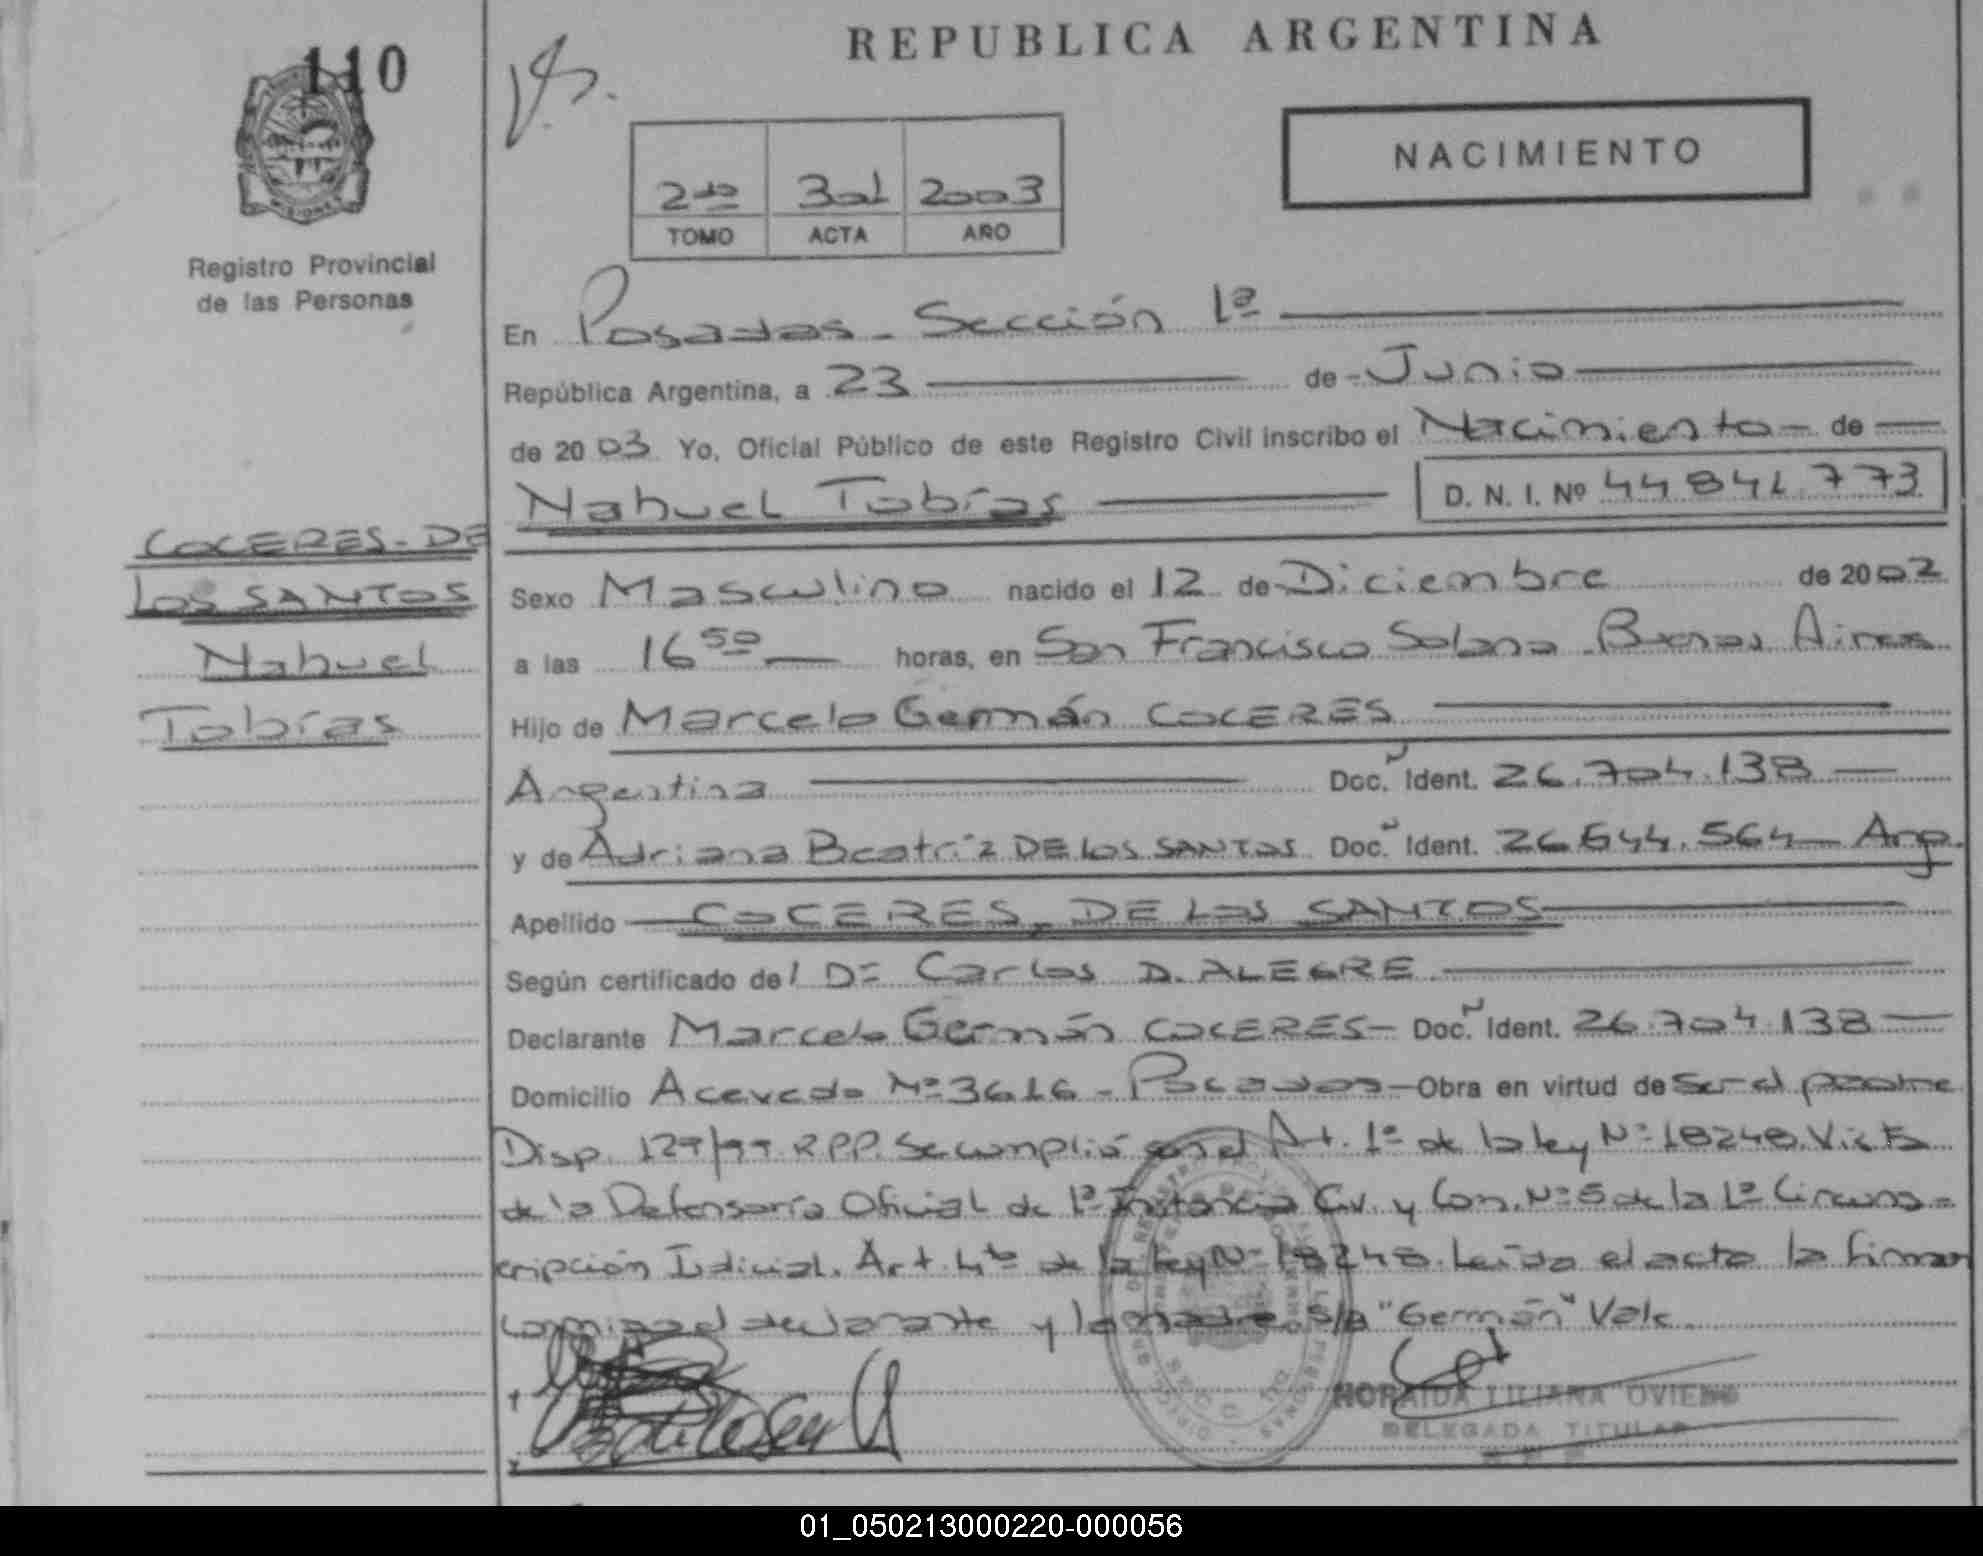 110
REPUBLICA ARGENTINA
NACIMIENTO
2do 301 2003
TOMO ACTA AÑO
MISIONES
Registro Provincial
de las Personas
En Posadas - Sección 1ª
República Argentina, a 23 de Junio
de 2003 Yo, Oficial Público de este Registro Civil inscribo el Nacimiento de
Nahuel Tobías D. N. I. Nº 44 841 773
COCERES - DE
LOS SANTOS
Nahuel
Tobías
Sexo Masculino nacido el 12 de Diciembre de 2002
a las 16 50 horas, en San Francisco Solano - Buenos Aires
Hijo de Marcelo Germán COCERES
Argentina Doc. Ident. 26.704.138
y de Adriana Beatríz DE LOS SANTOS Doc. Ident. 26.644.564 - Arg.
Apellido COCERES, DE LOS SANTOS
Según certificado del Dr Carlos D. ALEGRE
Declarante Marcelo Germán COCERES - Doc. Ident. 26.704.138
Domicilio Acevedo Nº 3616 - Posadas - Obra en virtud de ser el padre
Disp. 127/97 R.P.P. Se cumplió con el Art. 1º de la ley Nº 18248. Vista
de la Defensoría Oficial de 1ª Instancia Civ. y Com. Nº 5 de la 1ª Circuns-
cripción Judicial. Art. 4to de la ley Nº 18248. Leída el acta la firman
conmigo el declarante y la madre. S/a "Germán" Vale.
NORAIDA LILIANA OVIEDO
DELEGADA TITULAR
01_050213000220-000056